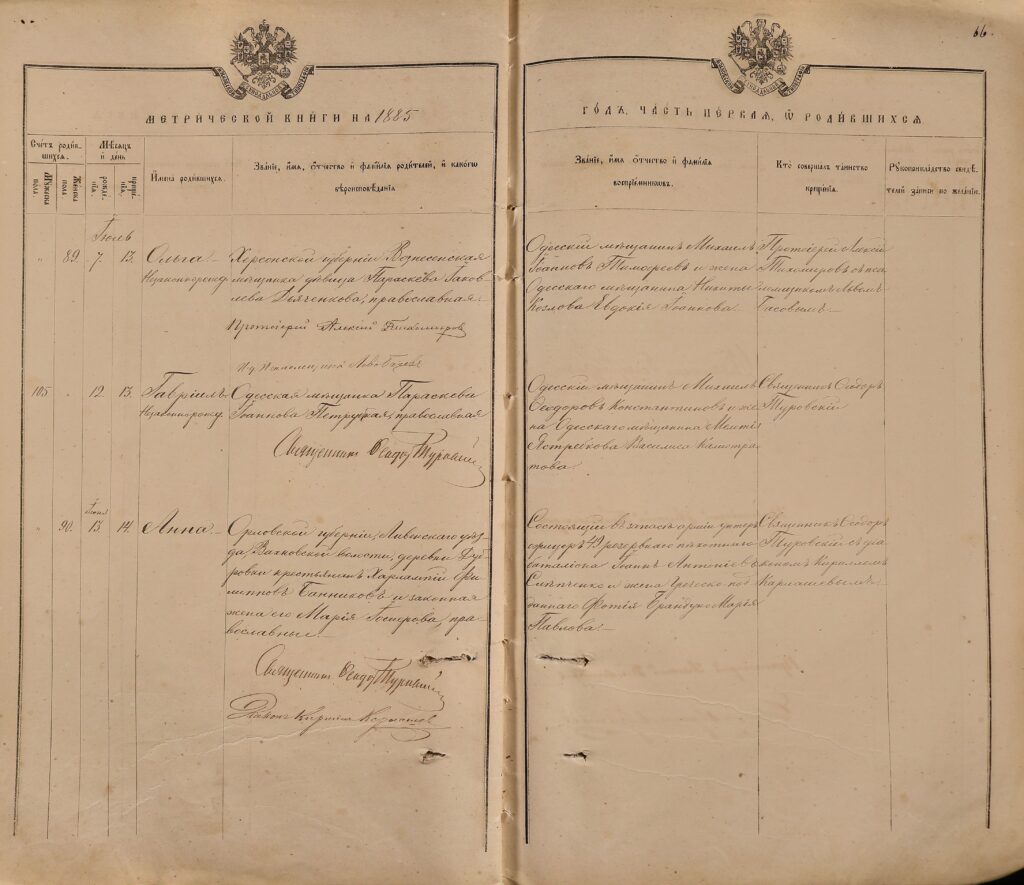 66.
МЕТРИЧЕСКОЙ КНИГИ НА 1885
ГОДЪ, ЧАСТЬ ПЕРВАЯ, Ѡ РОДИВШИХСЯ
Счетъ родив-
шихся.
Мужеска пола
Женска пола
Мѣсяцъ
и день
рожденія.
крещенія.
Имена родившихся.
Званіе, имя, отчество и фамилія родителей, и какого
вѣроисповѣданія
Званіе, имя отчество и фамилія
воспріемниковъ.
Кто совершалъ таинство
крещенія.
Рукоприкладство свидѣ-
телей записи по желанію.
89.
7.
13.
Ольга
Незаконнорожд.
Херсонской губерніи Вознесенская
мѣщанка дѣвица Параскева Іаков-
лева Дьяченкова, православная.
Протоіерей Алексій
Одесскій мѣщанинъ Михаилъ
Іоанновъ Тимофеевъ и жена
Одесскаго мѣщанина Никиты
Козлова Евдокія Іоаннова.
Протоіерей Алексій
105
12
13.
Гавріилъ
Незаконнорожд.
Одесская мѣщанка Параскева
Іоаннова Петруцкая, православная
Священникъ Ѳеодоръ Туровскій
Одесскій мѣщанинъ Михаилъ
Ѳеодоровъ Константиновъ и же-
на Одесскаго мѣщанина
Ястребкова Василиса Калистра-
това.
Священникъ Ѳеодоръ
Туровскій
90.
13
14.
Анна
Орловской губерніи, Ливенскаго уѣз-
да, волости, деревни Дуб-
ровки крестьянинъ Харлампій Фи-
липповъ Банниковъ и законная
жена его Марія пра-
вославные
Священникъ Ѳеодоръ Туровскій
Діаконъ Кириллъ
Состоящій въ запасѣ арміи унтеръ
офицеръ 49 резервнаго пѣхотнаго
баталіона Іоаннъ Антоніевъ
Слѣпченко и жена Греческо-под-
даннаго Фотія Марія
Павлова.
Священникъ Ѳеодоръ
Туровскій съ діа-
кономъ Кирилломъ